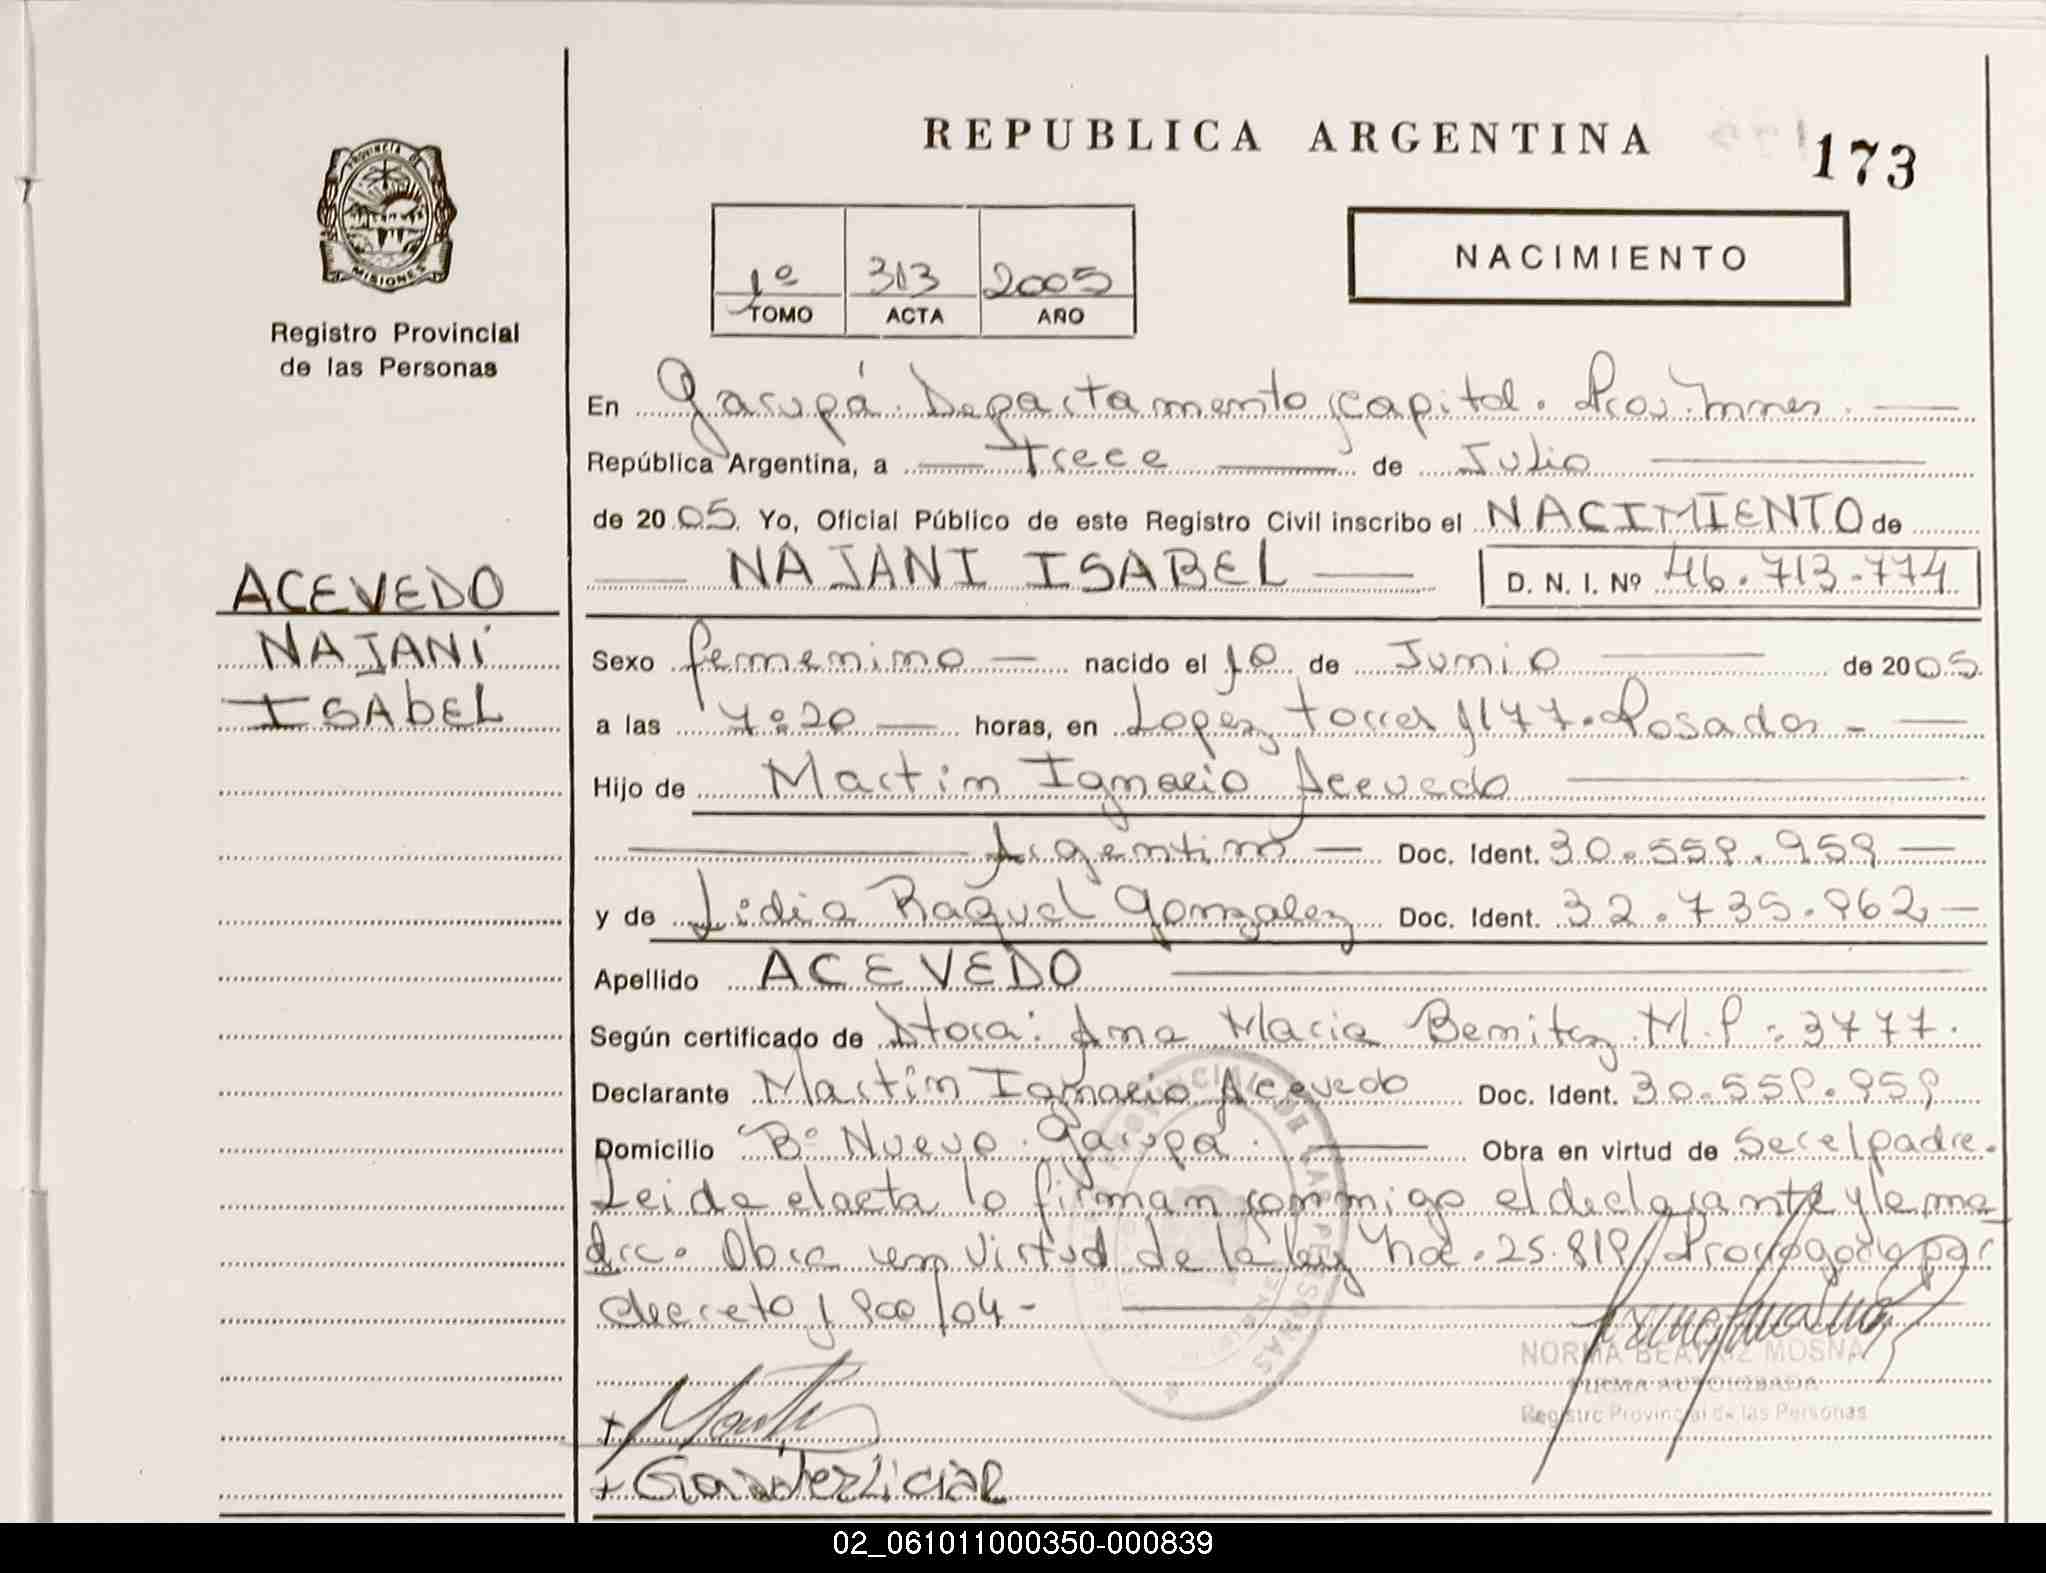 REPUBLICA ARGENTINA
173
PROVINCIA DE
MISIONES
Registro Provincial
de las Personas
1º 313 2005
TOMO ACTA AÑO
NACIMIENTO
En Garupá. Departamento capital. Prov. Mnes.
República Argentina, a Trece de Julio
de 2005. Yo, Oficial Público de este Registro Civil inscribo el NACIMIENTO de
NAJANI ISABEL D. N. I. Nº 46.713.774
ACEVEDO
NAJANI
ISABEL
Sexo femenino nacido el 10 de Junio de 2005
a las 7:20 horas, en Lopez Torres 1177. Posadas
Hijo de Martin Ignacio Acevedo
Argentino Doc. Ident. 30.559.959
y de Lidia Raquel Gonzalez Doc. Ident. 32.735.962
Apellido ACEVEDO
Según certificado de Dtora: Ana Maria Benitez M.P: 3477.
Declarante Martin Ignacio Acevedo Doc. Ident. 30.559.959
Domicilio Bº Nuevo. Garupá. Obra en virtud de Ser el padre.
Leida el acta lo firman conmigo el declarante y la ma_
dre. Obra en virtud de la ley nac. 25.819 Prorrogada por
decreto 1900/04 -
NORMA BEATRIZ MOSNA
FIRMA AUTORIZADA
Registro Provincial de las Personas
02_061011000350-000839